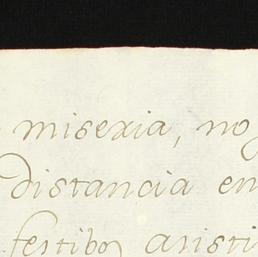 miseria, no
distancia en
festibos asisti